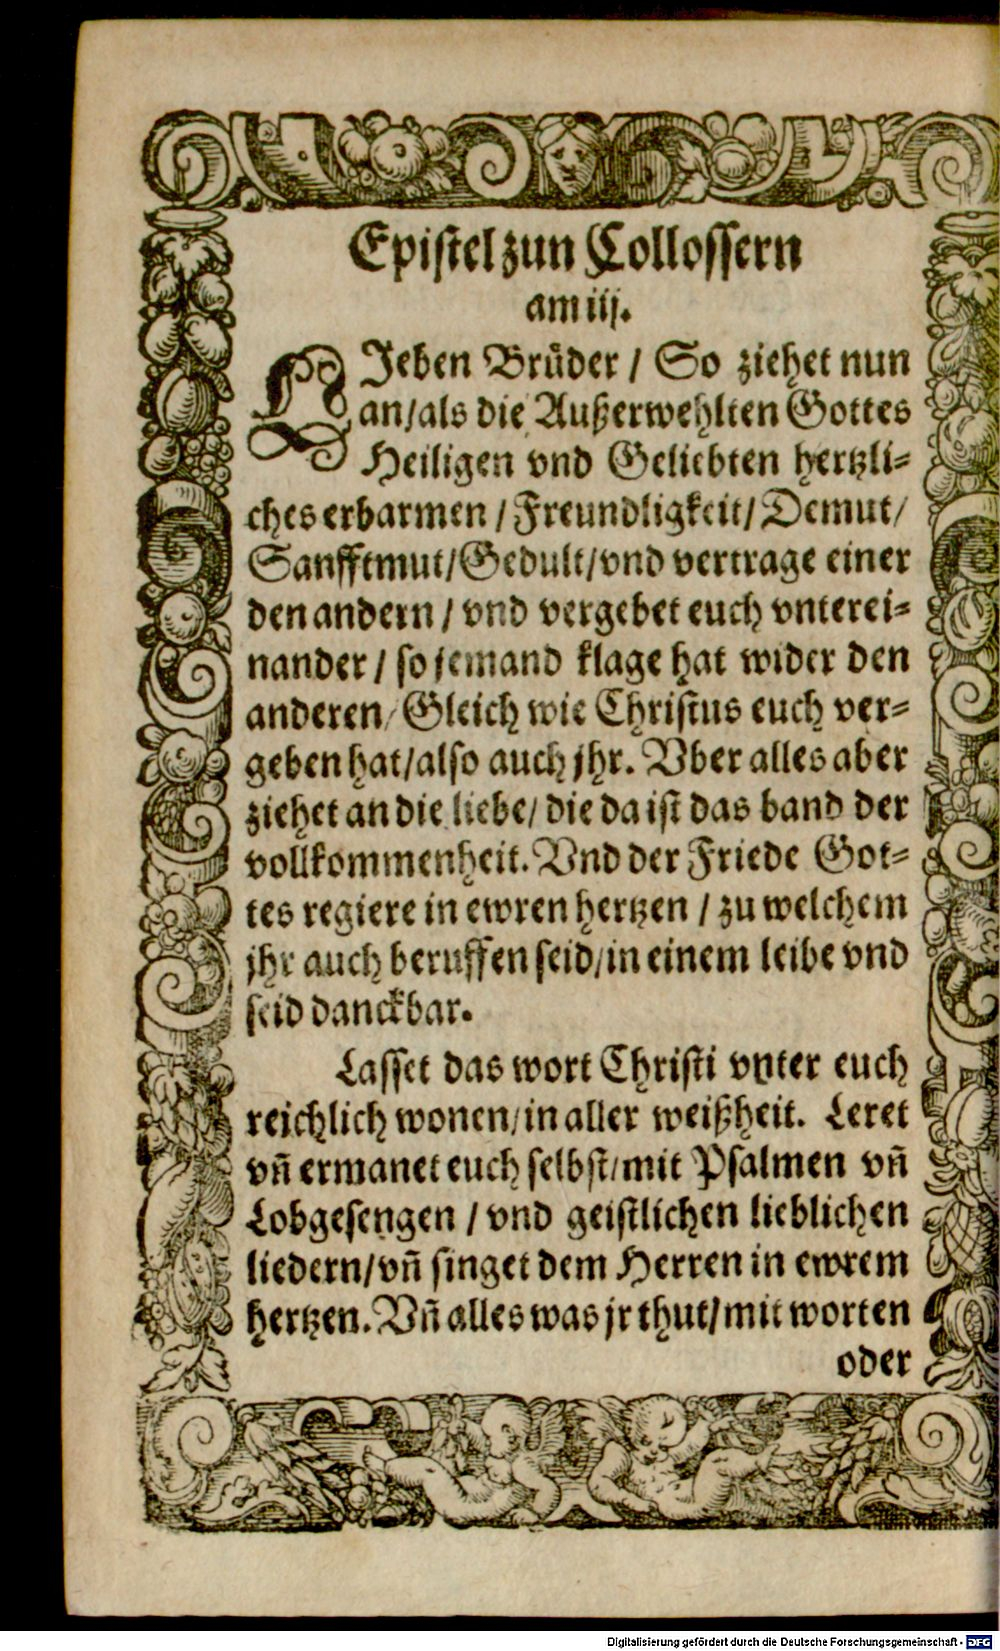 Epistel zun Collossern
am iij.
LJeben Brüder / So ziehet nun
an/als die Außerwehlten Gottes
Heiligen vnd Geliebten hertzli-
ches erbarmen / Freundligkeit/ Demut/
Sanfftmut/Gedult/vnd vertrage einer
den andern / vnd vergebet euch vnterei-
nander / so jemand klage hat wider den
anderen/ Gleich wie Christus euch ver-
geben hat/also auch jhr. Vber alles aber
ziehet an die liebe/ die da ist das band der
vollkommenheit. Vnd der Friede Got-
tes regiere in ewren hertzen / zu welchem
jhr auch beruffen seid/in einem leibe vnd
seid danckbar.
Lasset das wort Christi vnter euch
reichlich wonen/in aller weißheit. Leret
vñ ermanet euch selbst/mit Psalmen vñ
Lobgesengen / vnd geistlichen lieblichen
liedern/vñ singet dem Herren in ewrem
hertzen. Vñ alles was jr thut/mit worten
oder
Digitalisierung gefördert durch die Deutsche Forschungsgemeinschaft - DFG